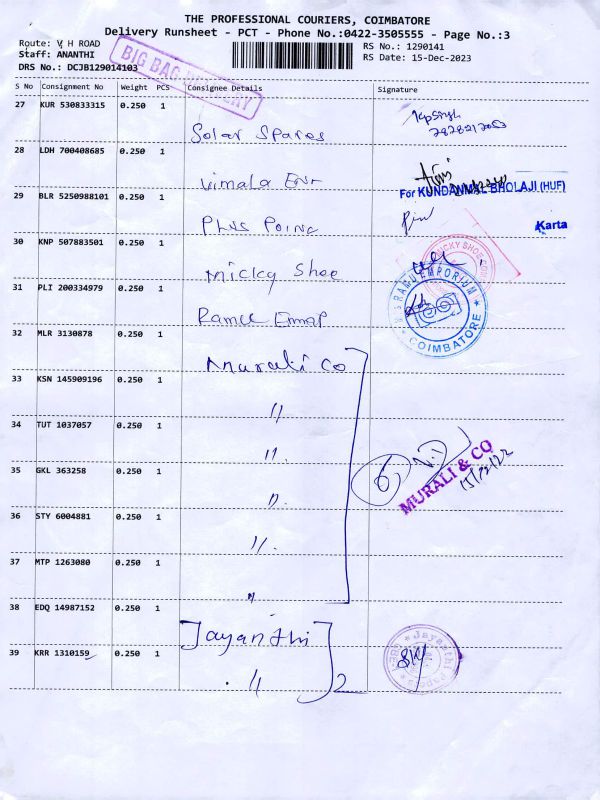 THE PROFESSIONAL COURIERS, COIMBATORE
Delivery Runsheet - PCT - Phone No.:0422-3505555 - Page No.:3
Route: V H ROAD
RS No.: 1290141
Staff: ANANTHI
RS Date: 15-Dec-2023
DRS No.: DCJB129014103
BIG BAG DELIVERY
S No Consignment No Weight PCS Consignee Details Signature
27 KUR 530833315 0.250 1
Solar Spares
28 LDH 700408685 0.250 1
Vimala Ent
For KUNDANMAL BHOLAJI (HUF)
29 BLR 5250988101 0.250 1
Plus Point
Karta
30 KNP 507883501 0.250 1
Micky Shoe
31 PLI 200334979 0.250 1
RAMU EMPORIUM
COIMBATORE
Ramu Emmp
32 MLR 3130878 0.250 1
Murali Co
33 KSN 145909196 0.250 1
"
34 TUT 1037057 0.250 1
"
6
MURALI & CO
35 GKL 363258 0.250 1
"
36 STY 6004881 0.250 1
"
37 MTP 1263080 0.250 1
"
38 EDQ 14987152 0.250 1
Jayanthi
Jayanthi Papers
39 KRR 1310159 0.250 1
" 2